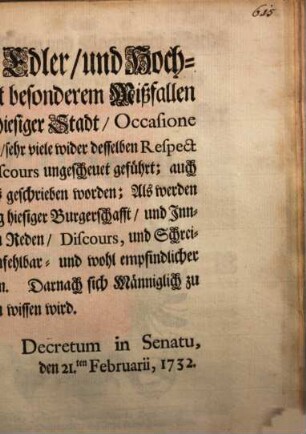 615
Edler/und Hoch-
t besonderem Mißfallen
hiesiger Stadt/ Occasione
/sehr viele wider desselben Respect
scours ungescheuet geführt; auch
s geschrieben worden; Als werden
g hiesiger Burgerschafft/ und Inn-
n Reden/ Discours, und Schrei-
nfehlbar- und wohl empfindlicher
n. Darnach sich Männiglich zu
n wissen wird.
Decretum in Senatu,
den 21.ten Februarii, 1732.